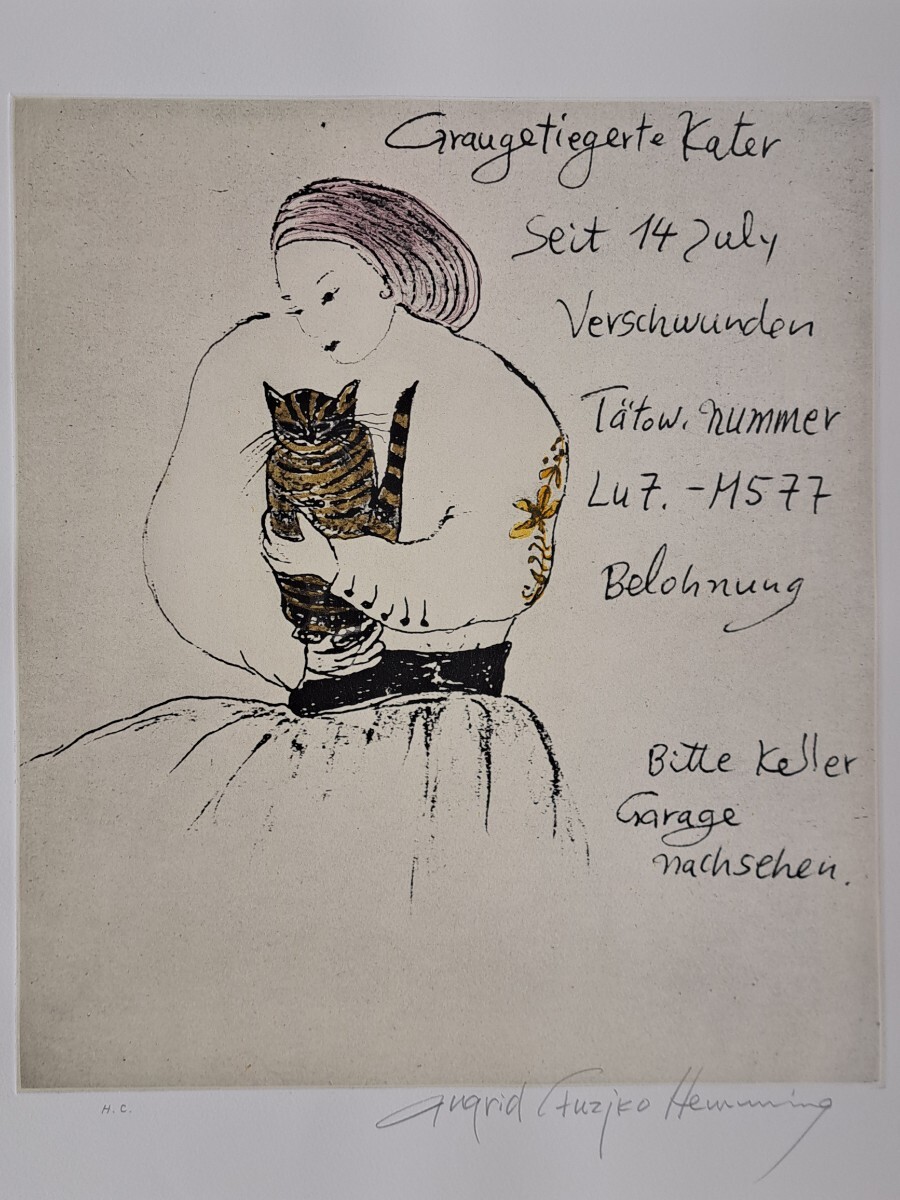 Graugetiegerte Kater
Seit 14 July
Verschwunden
Tätow. nummer
Lu7. - M577
Belohnung
Bitte Keller
Garage
nachsehen.
H.C.
Ingrid Fuzjko Hemming